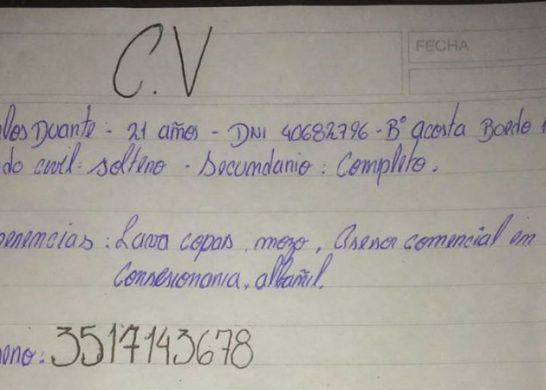 C.V
FECHA
los Duarte - 21 años - DNI 40682796 - B° acosta Boedo 1
do civil: soltero - Secundario: Completo.
periencias: Lava copas, mozo, Asesor comercial em
Consesionaria, albañil.
ono: 3517143678